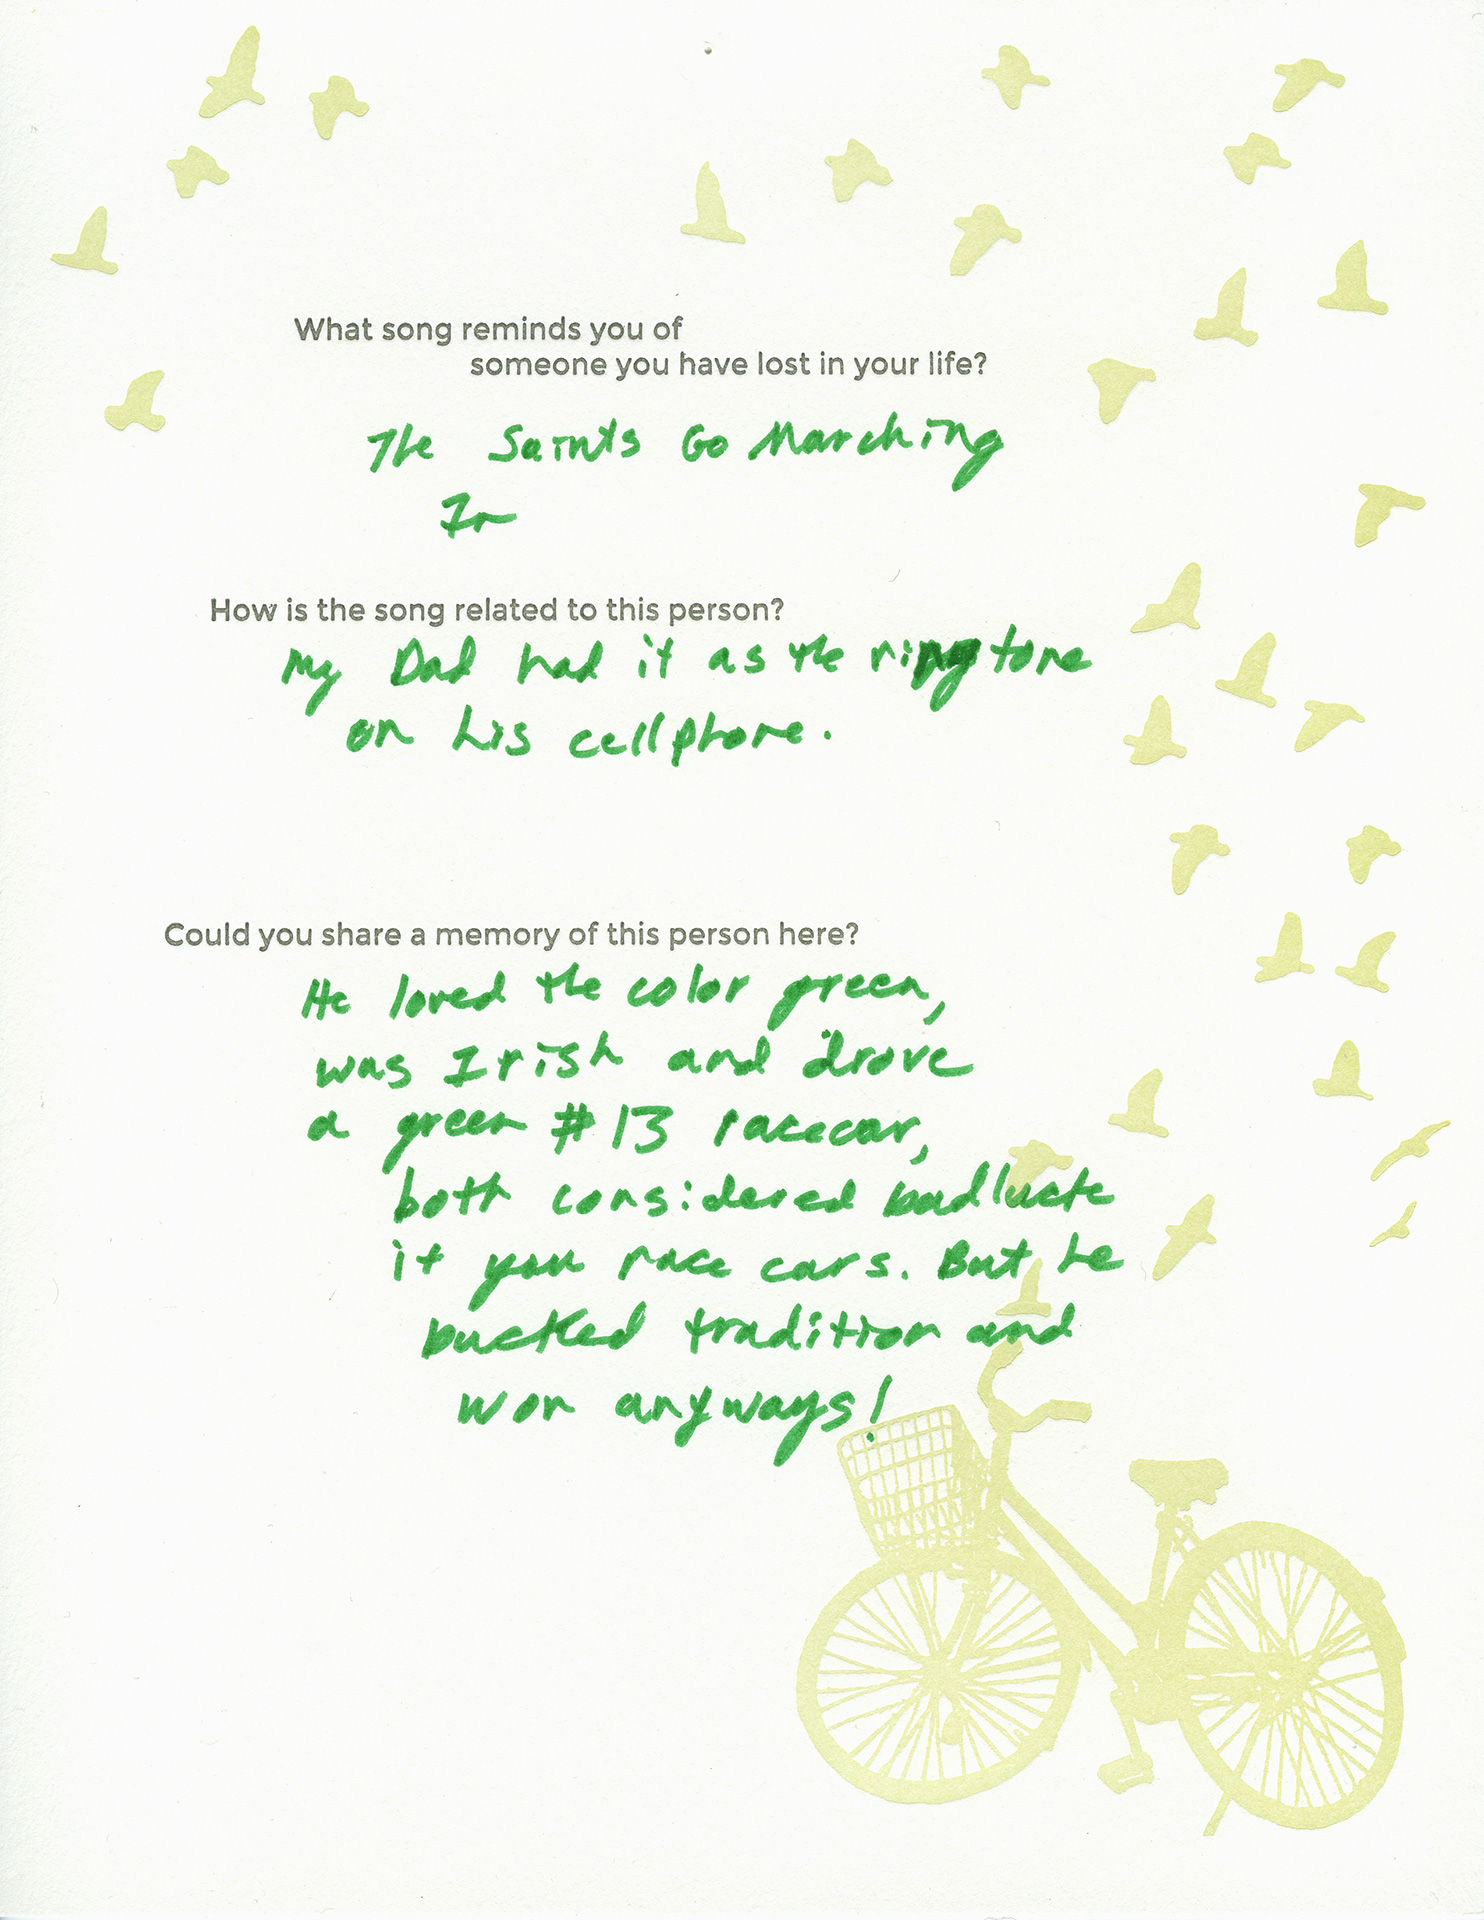 What song reminds you of
someone you have lost in your life?
The Saints Go Marching
In
How is the song related to this person?
My Dad had it as the ringtone
on his cellphone.
Could you share a memory of this person here?
He loved the color green,
was Irish and drove
a green #13 racecar,
both considered bad luck
if you race cars. But he
bucked tradition and
won anyways!